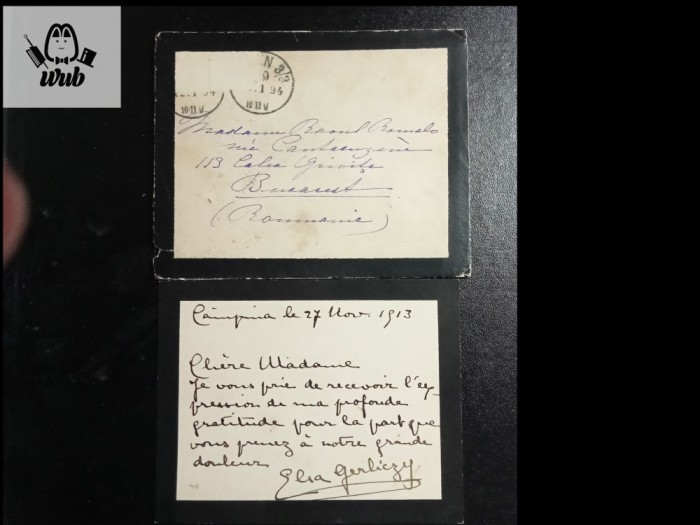 wub
EN 3/2
9
1 94
10-11 V
1 94
10-11 V
Madame Raoul Romalo
née Cantacuzène
113 Calea Griviţa
Bucarest
(Roumanie)
Câmpina le 27 Nov. 1913
Chère Madame
Je vous prie de recevoir l'ex-
pression de ma profonde
gratitude pour la part que
vous prenez à notre grande
douleur
Elsa Gerliczy